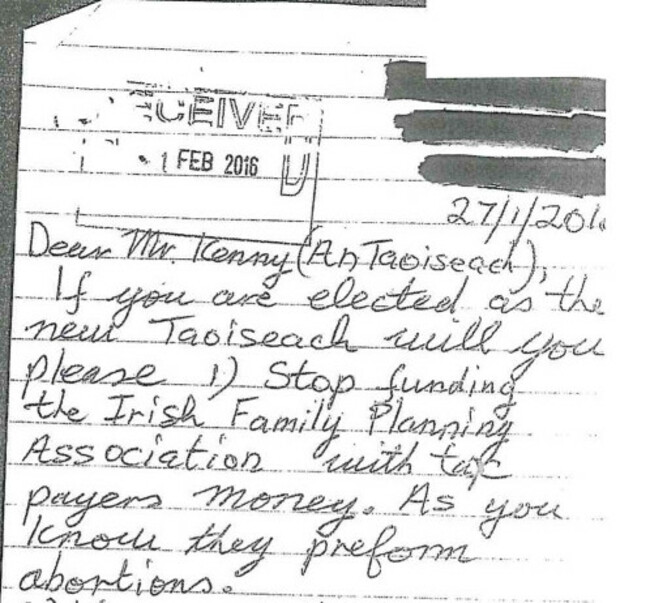 RECEIVED
1 FEB 2016
27/1/201
Dear Mr. Kenny (An Taoiseach),
If you are elected as the
new Taoiseach will you
please 1) Stop funding
the Irish Family Planning
Association with tax
payers money. As you
know they preform
abortions.